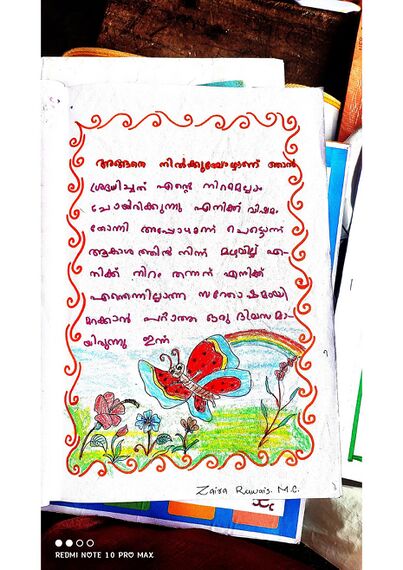 അങ്ങനെ നിൽക്കുമ്പോഴാണ് ഞാൻ
ശ്രദ്ധിച്ചത് എന്റെ നിറമെല്ലാം
പോയിരിക്കുന്നു എനിക്ക് വിഷമം
തോന്നി അപ്പോഴാണ് പെട്ടെന്ന്
ആകാശത്തിൽ നിന്ന് മഴവില്ല് എ-
നിക്ക് നിറം തന്നത് എനിക്ക്
സന്തോഷമായി
മറക്കാൻ പറ്റാത്ത ഒരു ദിവസമാ-
യിരുന്നു ഇന്ന്
Zaira Ruwais. M.C.
REDMI NOTE 10 PRO MAX